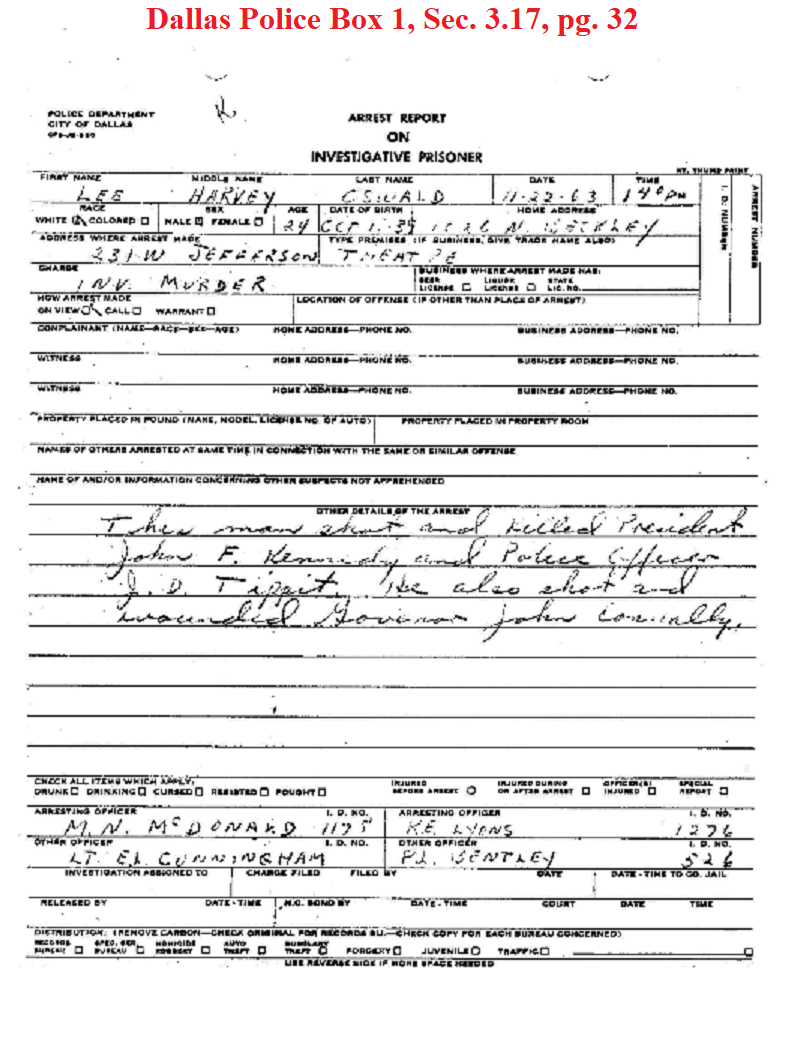 Dallas Police Box 1, Sec. 3.17, pg. 32
POLICE DEPARTMENT
CITY OF DALLAS
ARREST REPORT
ON
INVESTIGATIVE PRISONER
RT. THUMB PRINT
FIRST NAME MIDDLE NAME LAST NAME DATE TIME
LEE HARVEY OSWALD 11-22-63 1 40 PM
I. D. NUMBER
ARREST NUMBER
RACE SEX AGE DATE OF BIRTH HOME ADDRESS
WHITE COLORED MALE FEMALE 24 OCT 1026 N. BECKLEY
ADDRESS WHERE ARREST MADE TYPE PREMISES (IF BUSINESS, GIVE TRADE NAME ALSO)
231 W JEFFERSON THEATRE
CHARGE BUSINESS WHERE ARREST MADE HAS:
INV. MURDER BEER LICENSE LIQUOR LICENSE STATE LIC. NO.
HOW ARREST MADE LOCATION OF OFFENSE (IF OTHER THAN PLACE OF ARREST)
ON VIEW CALL WARRANT
COMPLAINANT (NAME—RACE—SEX—AGE) HOME ADDRESS—PHONE NO. BUSINESS ADDRESS—PHONE NO.
WITNESS HOME ADDRESS—PHONE NO. BUSINESS ADDRESS—PHONE NO.
WITNESS HOME ADDRESS—PHONE NO. BUSINESS ADDRESS—PHONE NO.
PROPERTY PLACED IN POUND (MAKE, MODEL, LICENSE NO. OF AUTO) PROPERTY PLACED IN PROPERTY ROOM
NAMES OF OTHERS ARRESTED AT SAME TIME IN CONNECTION WITH THE SAME OR SIMILAR OFFENSE
NAME OF AND/OR INFORMATION CONCERNING OTHER SUSPECTS NOT APPREHENDED
OTHER DETAILS OF THE ARREST
This man shot and killed President
John F. Kennedy and Police Officer
J. D. Tippit. He also shot and
wounded Governor John Connally.
CHECK ALL ITEMS WHICH APPLY: INJURED INJURED DURING OFFICER(S) SPECIAL
DRUNK DRINKING CURSED RESISTED FOUGHT BEFORE ARREST OR AFTER ARREST INJURED REPORT
ARRESTING OFFICER I. D. NO. ARRESTING OFFICER I. D. NO.
M.N. McDONALD 1178 K.E. LYONS 1276
OTHER OFFICER I. D. NO. OTHER OFFICER I. D. NO.
LT. E.L. CUNNINGHAM P.L. BENTLEY 526
INVESTIGATION ASSIGNED TO CHARGE FILED FILED BY DATE DATE - TIME TO CO. JAIL
RELEASED BY DATE - TIME H.C. BOND BY DATE - TIME COURT DATE TIME
DISTRIBUTION: (REMOVE CARBON—CHECK ORIGINAL FOR RECORDS BU.—CHECK COPY FOR EACH BUREAU CONCERNED)
RECORDS SPEC. SER. HOMICIDE AUTO BURGLARY
BUREAU BUREAU ROBBERY THEFT THEFT FORGERY JUVENILE TRAFFIC
USE REVERSE SIDE IF MORE SPACE NEEDED